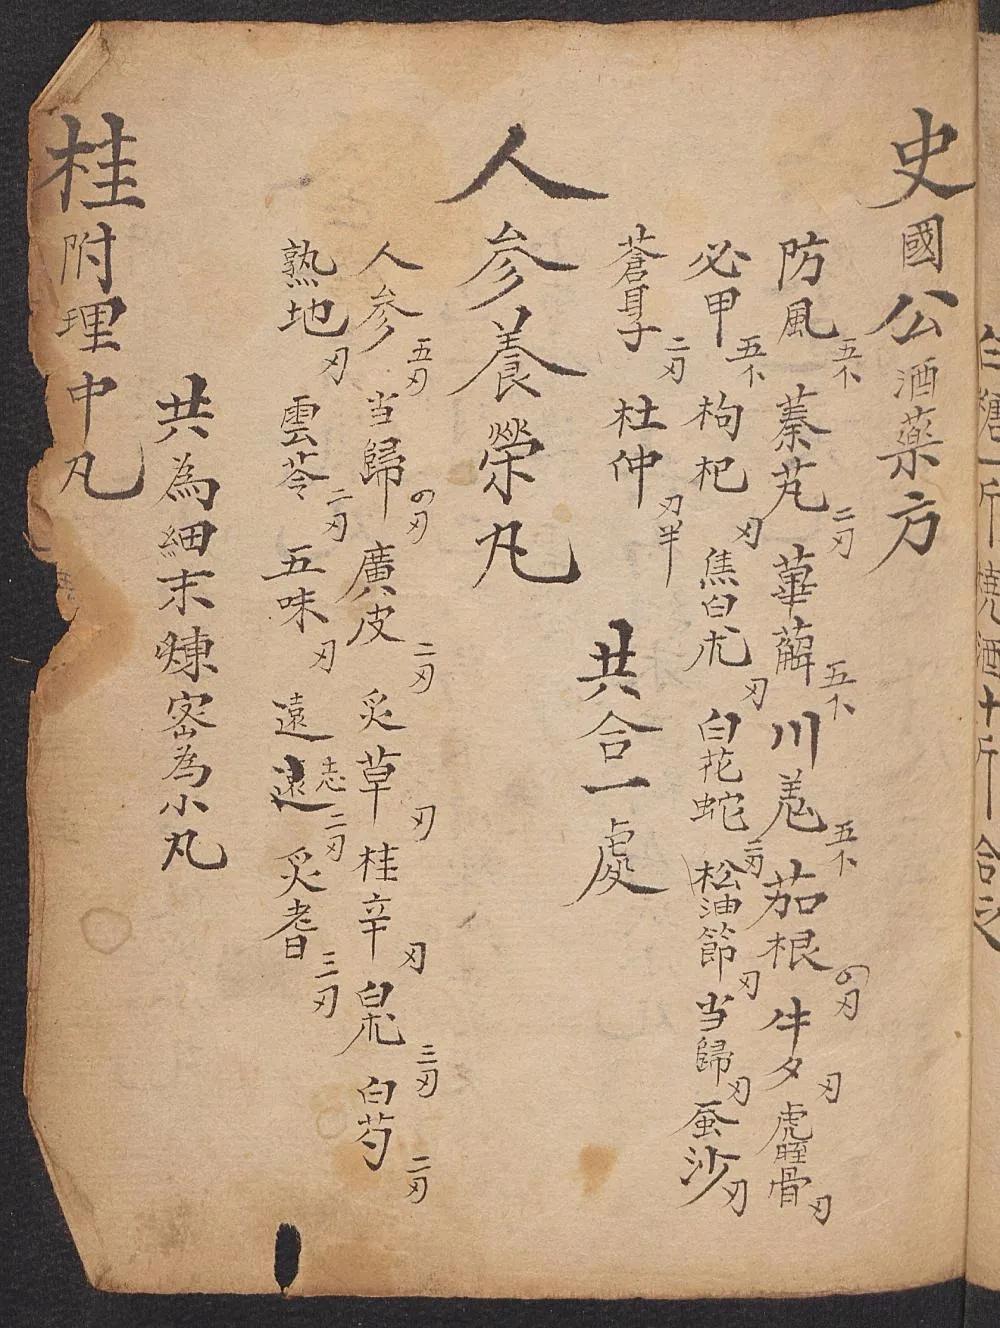 白糖一斤燒酒十斤合之
史國公酒藥方
防風五卜 蓁艽二刃 萆薢五卜 川羌五卜 茄根四刃 牛夕刃 虎脛骨刃
必甲五卜 枸杞刃 焦白朮刃 白花蛇二刃 松油節刃 当歸刃 蚕沙刃
蒼耳子二刃 杜仲刃半
共合一處
人参養榮丸
人参五刃 当歸四刃 廣皮二刃 炙草刃 桂辛刃 白朮三刃 白芍二刃
熟地刃 雲苓二刃 五味刃 遠志二刃 炙耆三刃
共為細末煉宻為小丸
桂附理中丸